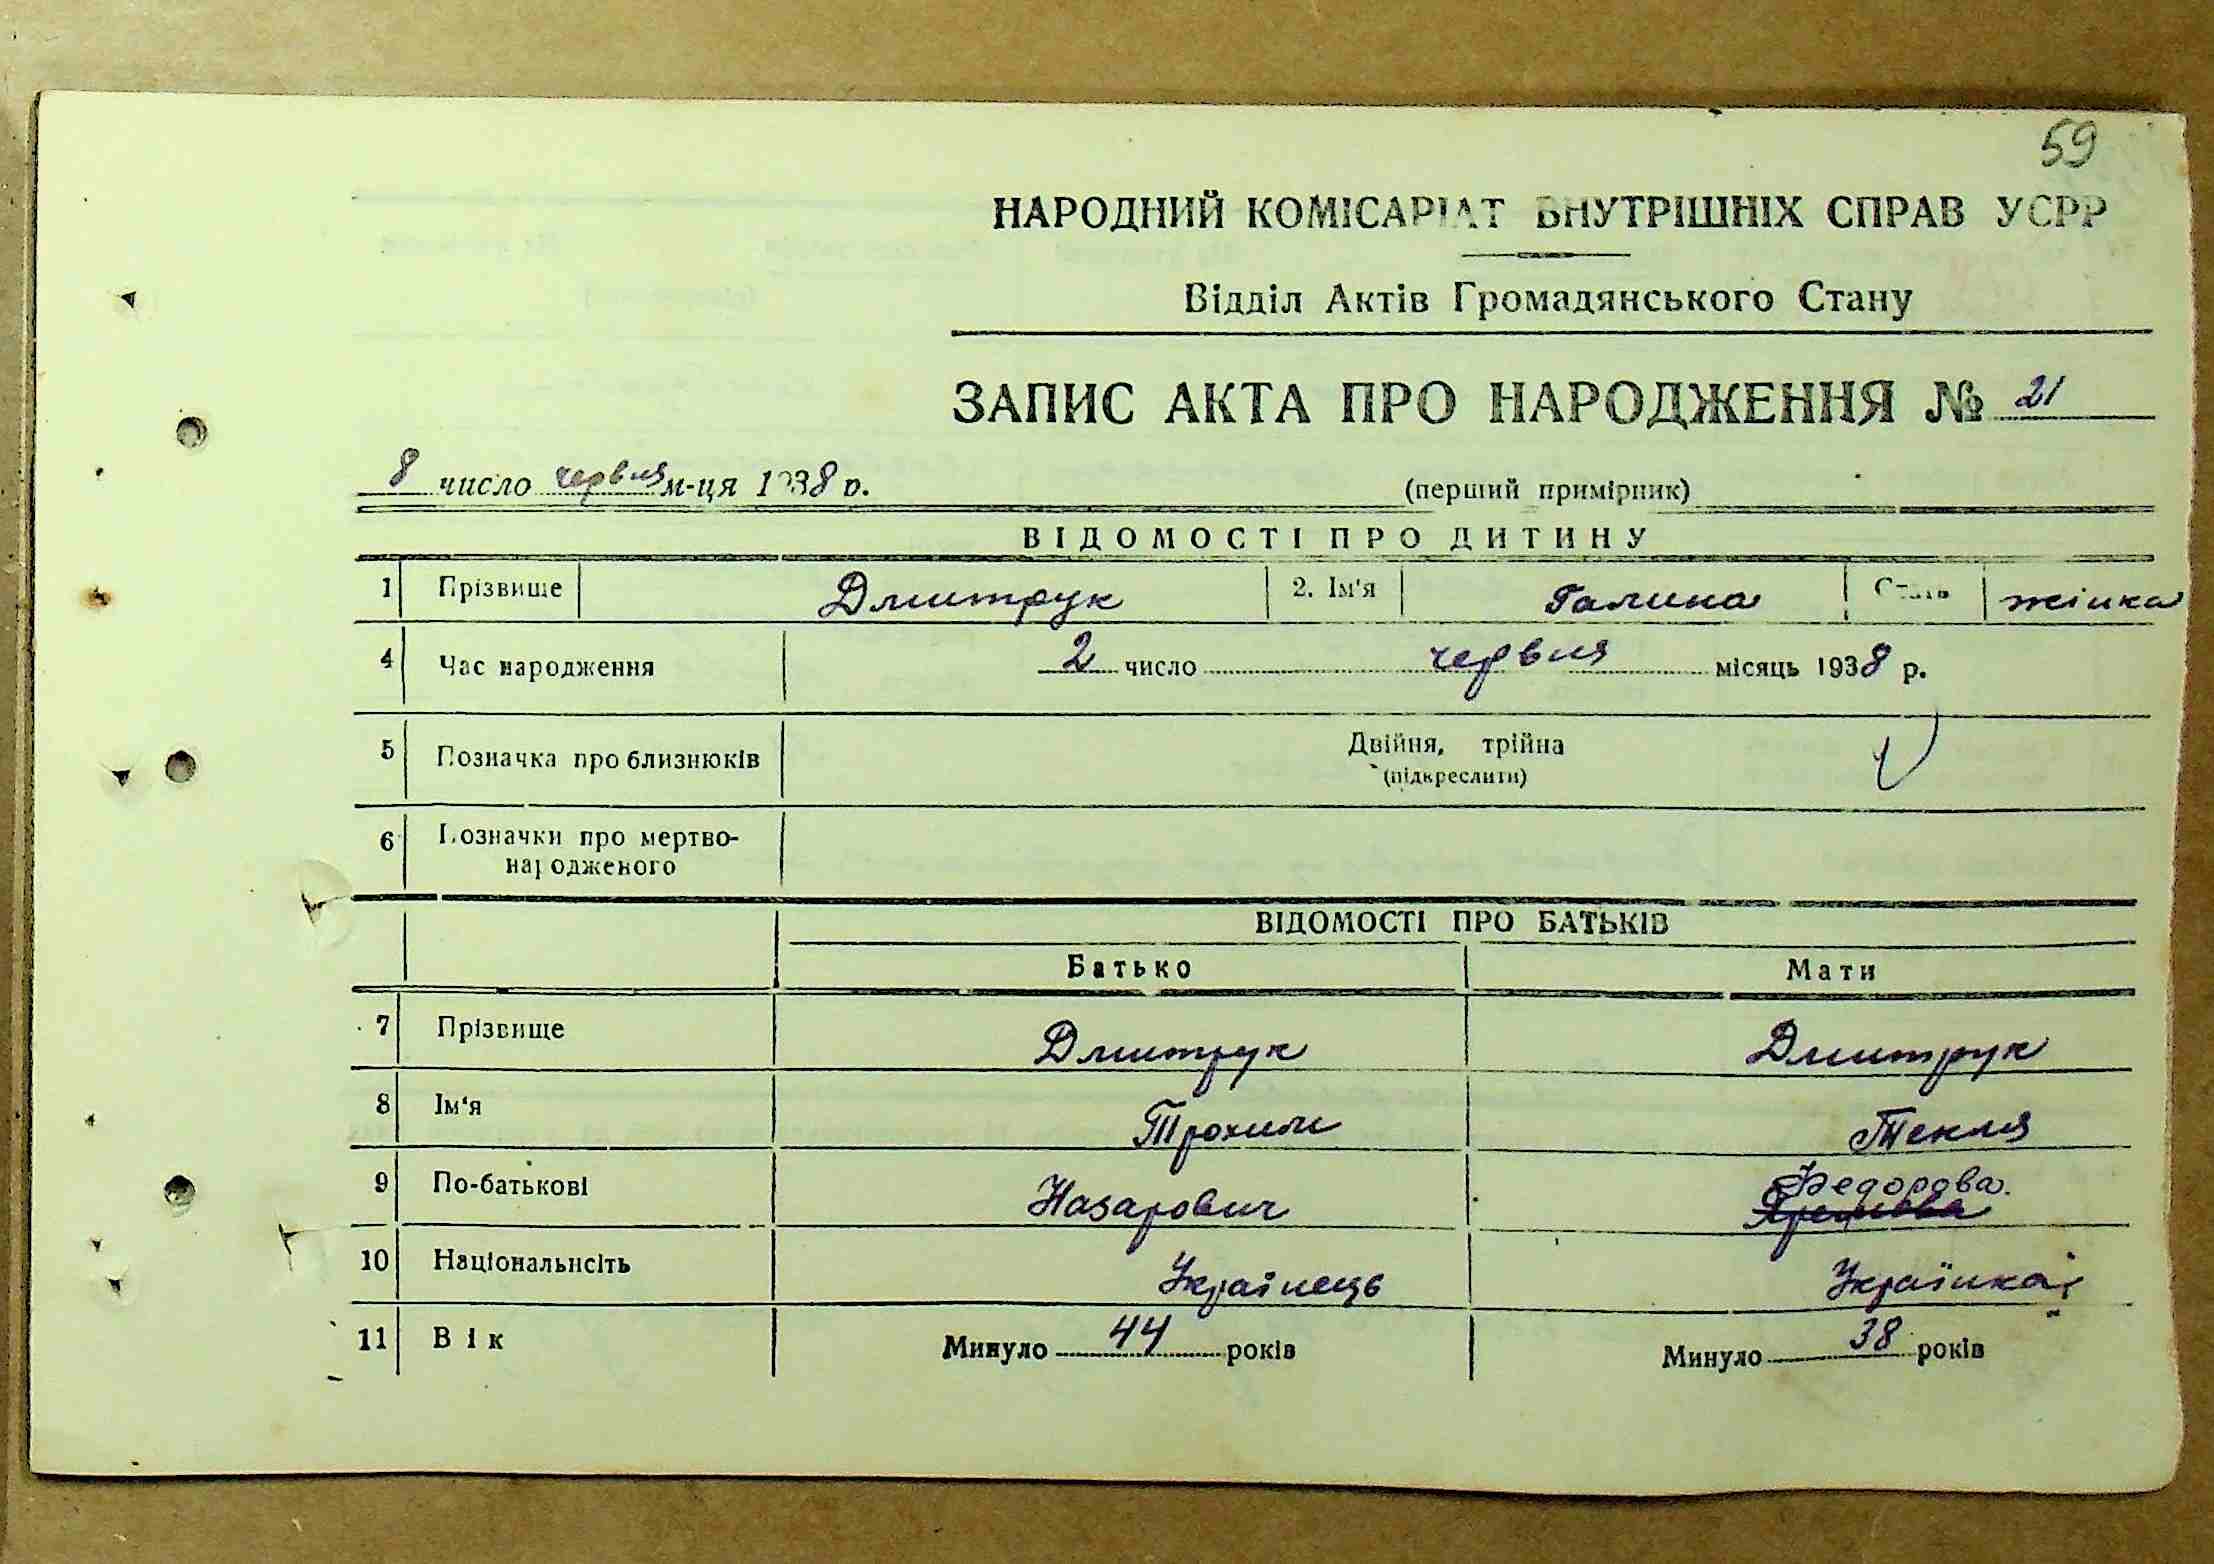 59
НАРОДНИЙ КОМІСАРІАТ ВНУТРІШНІХ СПРАВ УСРР
Відділ Актів Громадянського Стану
ЗАПИС АКТА ПРО НАРОДЖЕННЯ № 21
8 число червня м-ця 1938 р. (перший примірник)
ВІДОМОСТІ ПРО ДИТИНУ
1 Прізвище Дмитрук 2. Ім'я Галина Стать жінка
4 Час народження 2 число червня місяць 1938 р.
5 Позначка про близнюків Двійня, трійна
(підкреслити)
6 Позначки про мертво-
народженого
ВІДОМОСТІ ПРО БАТЬКІВ
Батько Мати
7 Прізвище Дмитрук Дмитрук
8 Ім'я Трохим Текля
9 По-батькові Назарович Федорова
10 Національнсіть Українець Українка
11 Вік Минуло 44 років Минуло 38 років